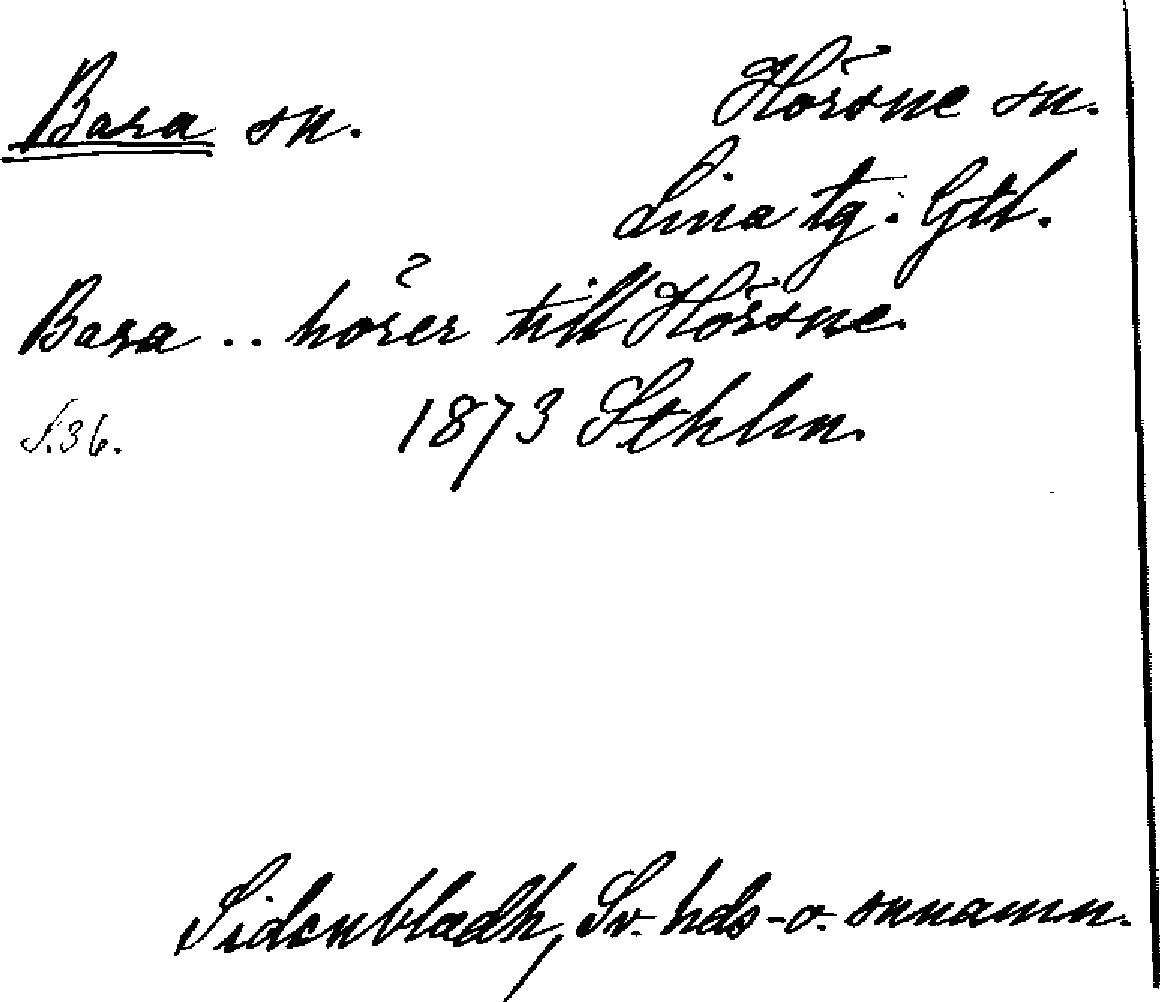 Bara sn.
Hörsne sn.
Lina tg. Gtl.
Bara .. hörer till Hörsne.
S.36.
1873 Sthlm.
Sidenbladh, Sv. hds- o. snnamn.